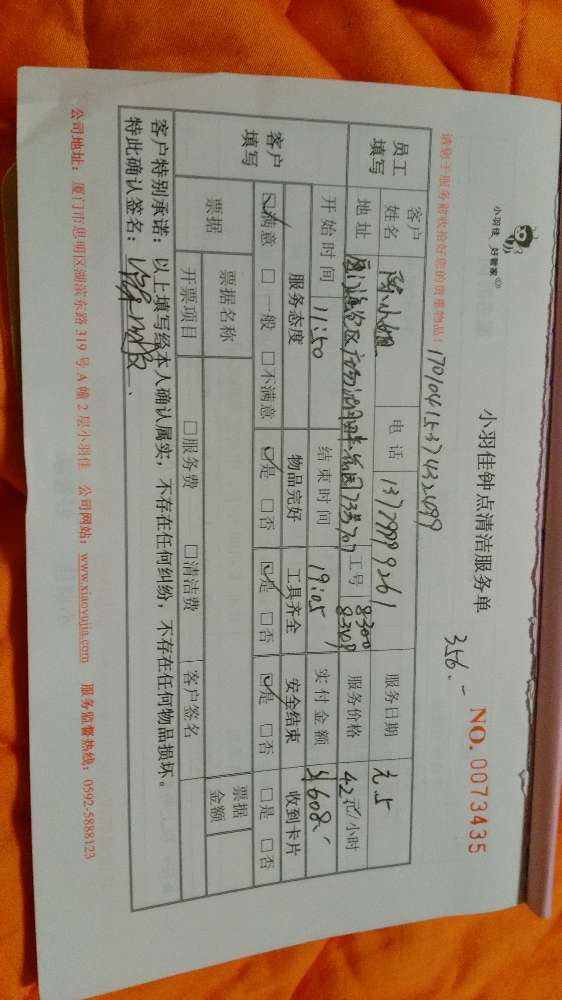 小羽佳 好管家
小羽佳钟点清洁服务单
NO. 0073435
356.-
请您于服务前收拾好您的贵重物品！
员工填写
客户姓名 陈小姐 电话 13779999261 服务日期
地址 工号 8300 服务价格 42元/小时
开始时间 11:50 结束时间 19:05 实付金额 608.
客户填写
服务态度 物品完好 工具齐全 安全结束 收到卡片
☑满意 □一般 □不满意 ☑是 □否 ☑是 □否 ☑是 □否 □是 □否
票据 票据名称 票据金额
开票项目 □服务费 □清洁费 客户签名
客户特别承诺：以上填写经本人确认属实，不存在任何纠纷，不存在任何物品损坏。
特此确认签名：
公司地址：厦门市思明区湖滨东路319号A幢2层小羽佳 公司网站：www.xiaoyujia.com 服务监督热线：0592-5888123